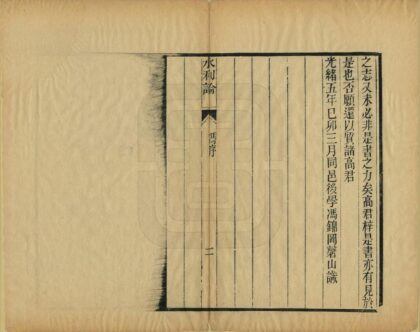 之志又未必非是書之力矣高君梓是書亦有見於
是也否願還以質諸高君
光緒五年己卯三月同邑後學馮錦圖磬山識
水利論
馮序
二